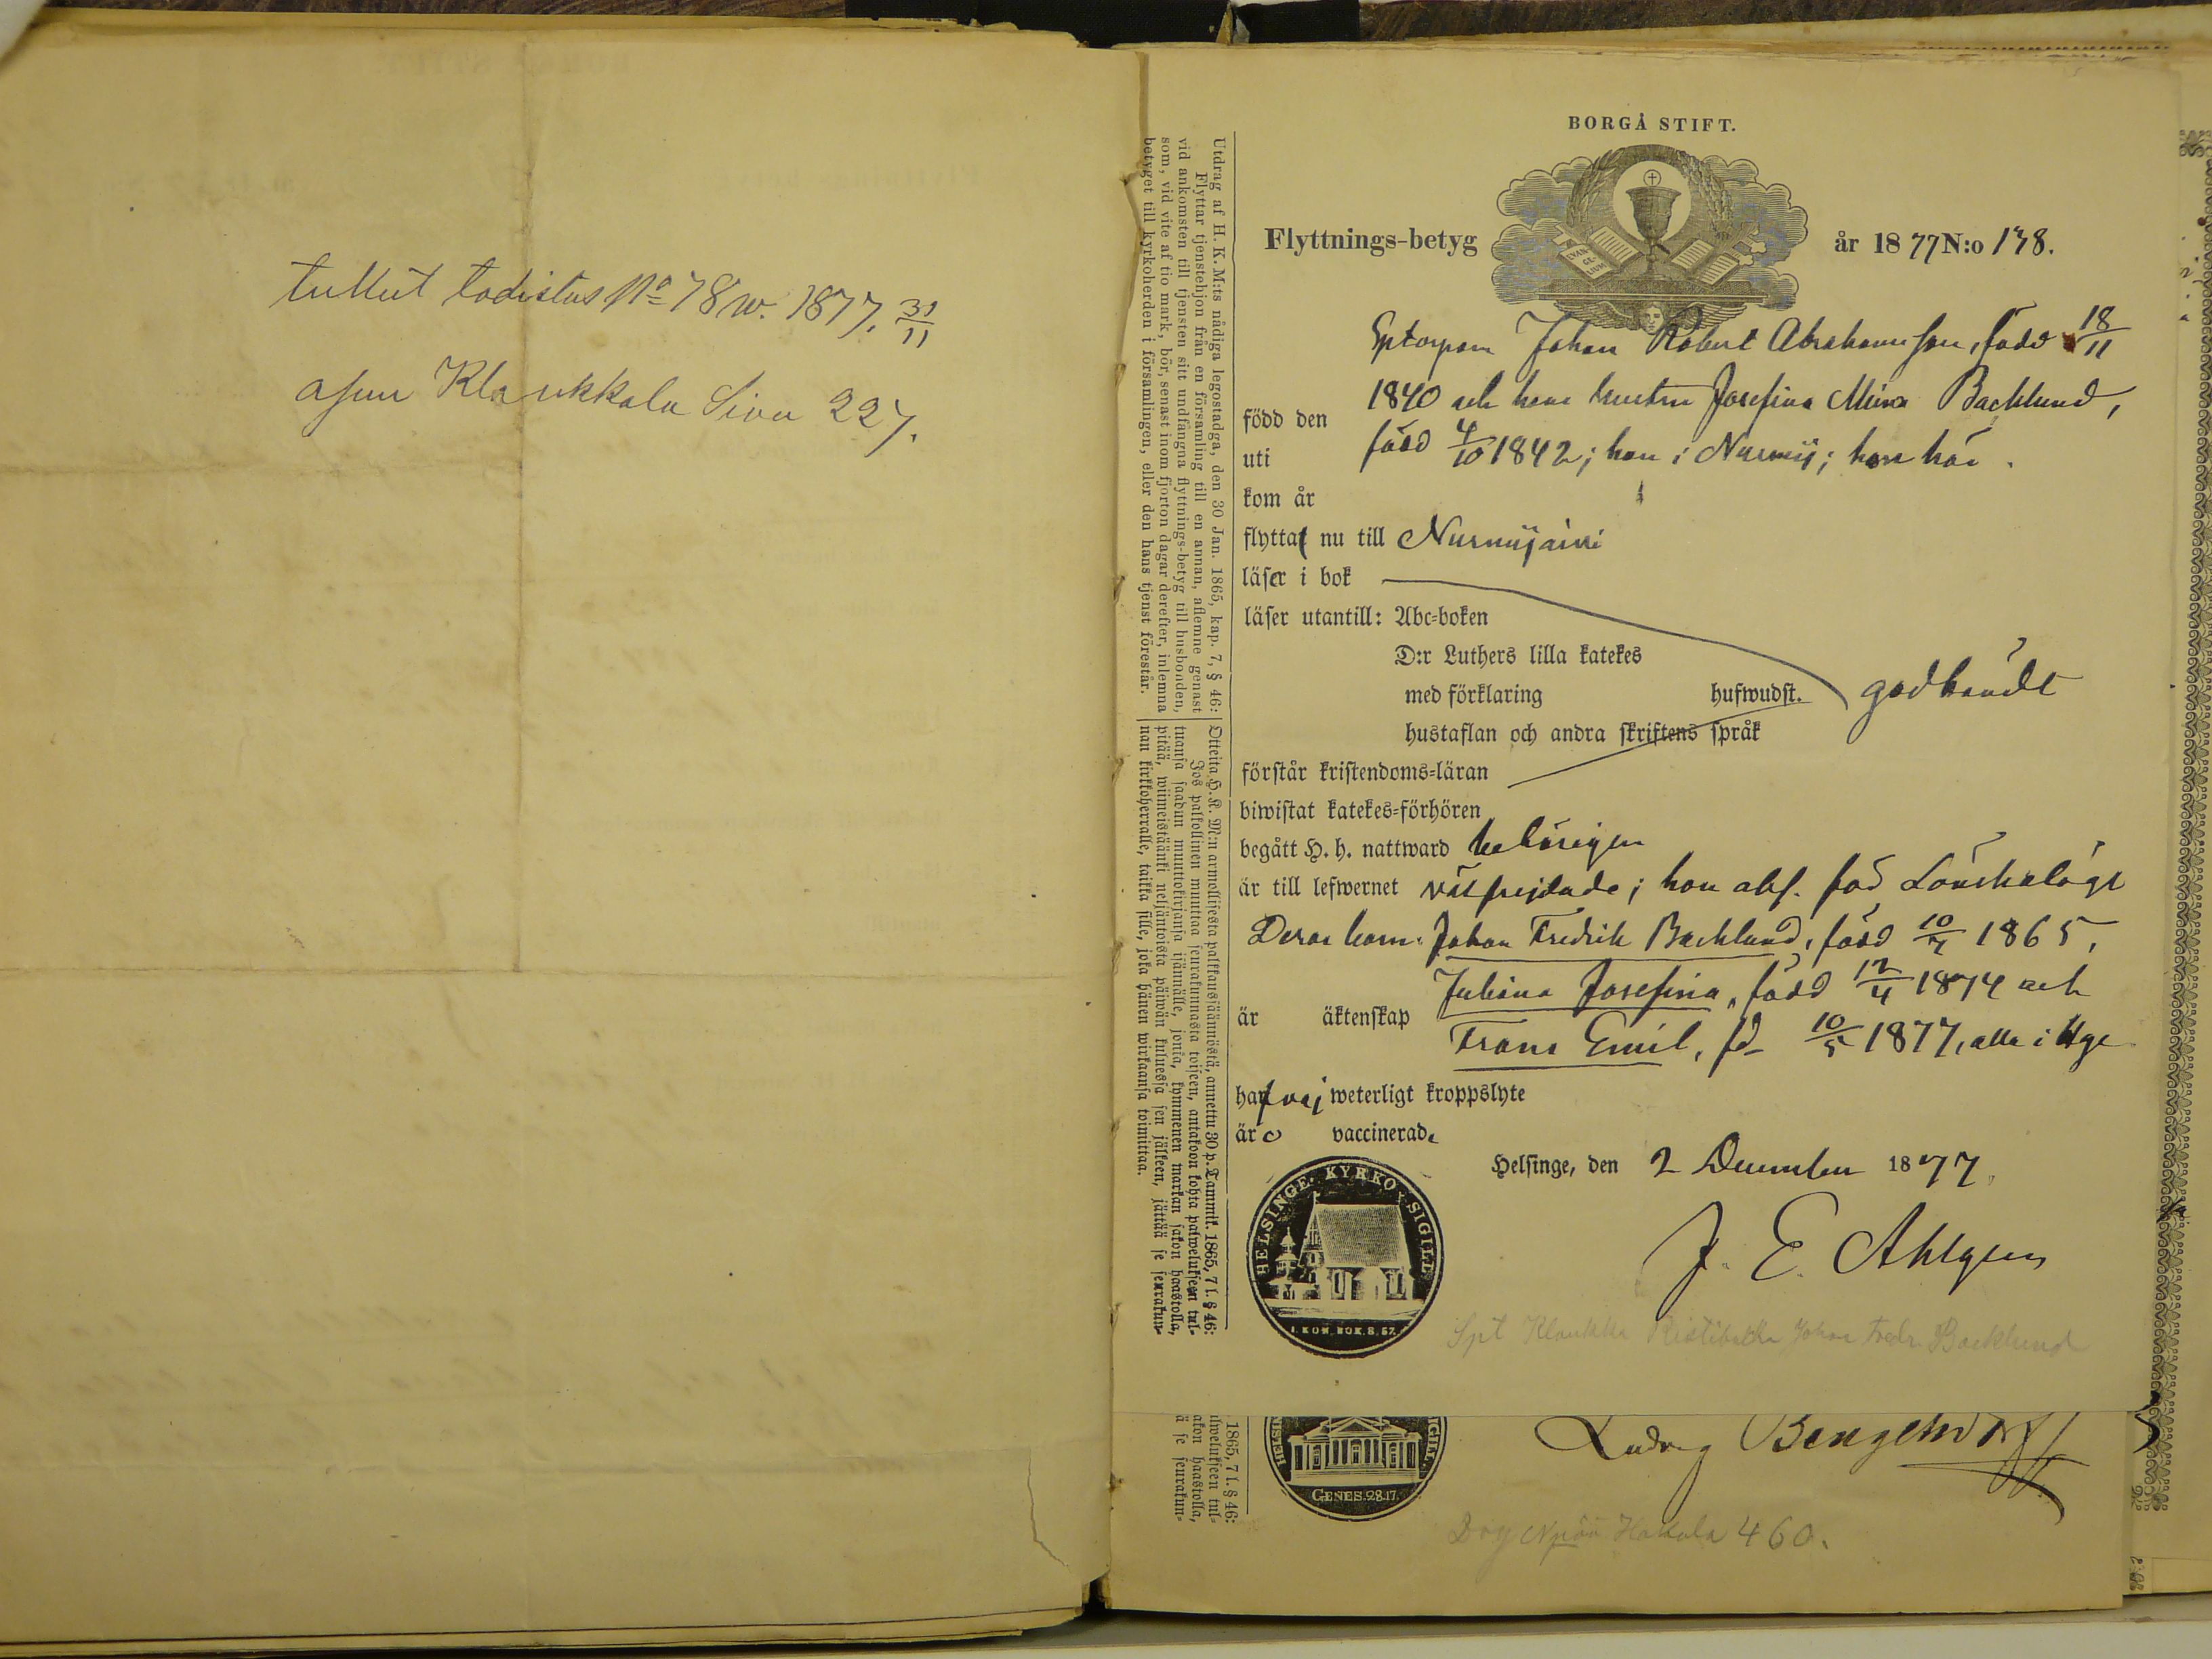 tullut todistus No 78 w. 1877. 31/11
asuu Klaukkala Sivu 227.
BORGÅ STIFT.
Flyttnings-betyg år 1877 N:o 178.
EVAN GE- LIUM
Johan Robert Abrahamsson, född 18/11
1840 och hans hustru Josefina Mina Backlund,
född den född 4/10 1842; han i Nurmij; hon här.
uti
kom år
flytta nu till Nurmijärvi
läser i bok
läser utantill: Abc-boken
D:r Luthers lilla katekes
med förklaring hufwudst. godkändt
hustaflan och andra skriftens språk
förstår kristendoms-läran
biwistat katekes-förhören
begått H. h. nattward behörigen
är till lefwernet välfrejdade; hon abs. för Lönskaläge
Deras barn: Johan Fredrik Backlund, född 10/7 1865,
Juliana Josefina, född 12/4 1874 och
är äktenskap Frans Emil, fd 10/5 1877, alla i Hge
hafva ej weterligt kroppslyte
äro vaccinerade
Helsinge, den 2 December 1877.
J. E. Ahlgren
HELSINGE KYRKO SIGILL.
1. KON. BOK. 8. 57.
Spt Klaukka Ristibacka Johan Fredr. Backlund
Utdrag af H. K. M:ts nådiga legostadga, den 30 Jan. 1865, kap. 7, § 46:
Flyttar tjenstehjon från en församling till en annan, aflemne genast
vid ankomsten till tjensten sitt undfångna flyttnings-betyg till husbonden,
som, vid vite af tio mark, bör, senast inom fjorton dagar derefter, inlemna
betyget till kyrkoherden i församlingen, eller den hans tjenst förestår.
Otteita H. K. M:n armollisesta palkkaussäännöstä, annettu 30 p. Tammik. 1865, 7 l. § 46:
Jos palkollinen muuttaa seurakunnasta toiseen, antakoon kohta palwelukseen tul-
tuansa saadun muuttokirjansa isännälle, jonka, kymmenen markan sakon haastolla,
pitää, wiimeistäänki neljäntoista päiwän kuluessa sen jälkeen, jättää se seurakun-
nan kirkkoherralle, taikka sille, joka hänen wirkaansa toimittaa.
Ludvig Bengelsdorff
GENES. 28.17.
Hakala 460.
1865, 7 l. § 46:
lwelukseen tul-
akon haastolla,
ä se seurakun-